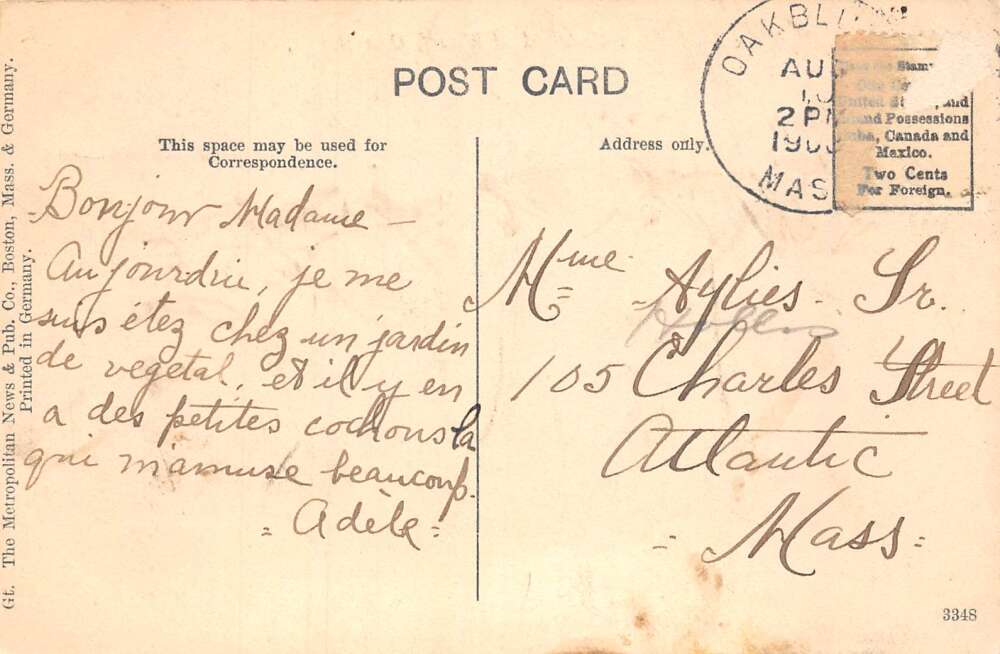 POST CARD
This space may be used for
Correspondence.
Address only.
OAK BL
AU
2 PM
MAS
Stam
One Ce
United St and
and Possessions
Canada and
Mexico.
Two Cents
For Foreign.
Bonjour Madame —
Aujourdui, je me
suis étez chez un jardin
de vegetal, et il y en
a des petites cochons la
qui m'amuse beaucoup.
= Adèle =
Mme Aylies. Sr.
105 Charles Street
Atlantic
- Mass =
Gt. The Metropolitan News & Pub. Co., Boston, Mass. & Germany.
Printed in Germany.
3348